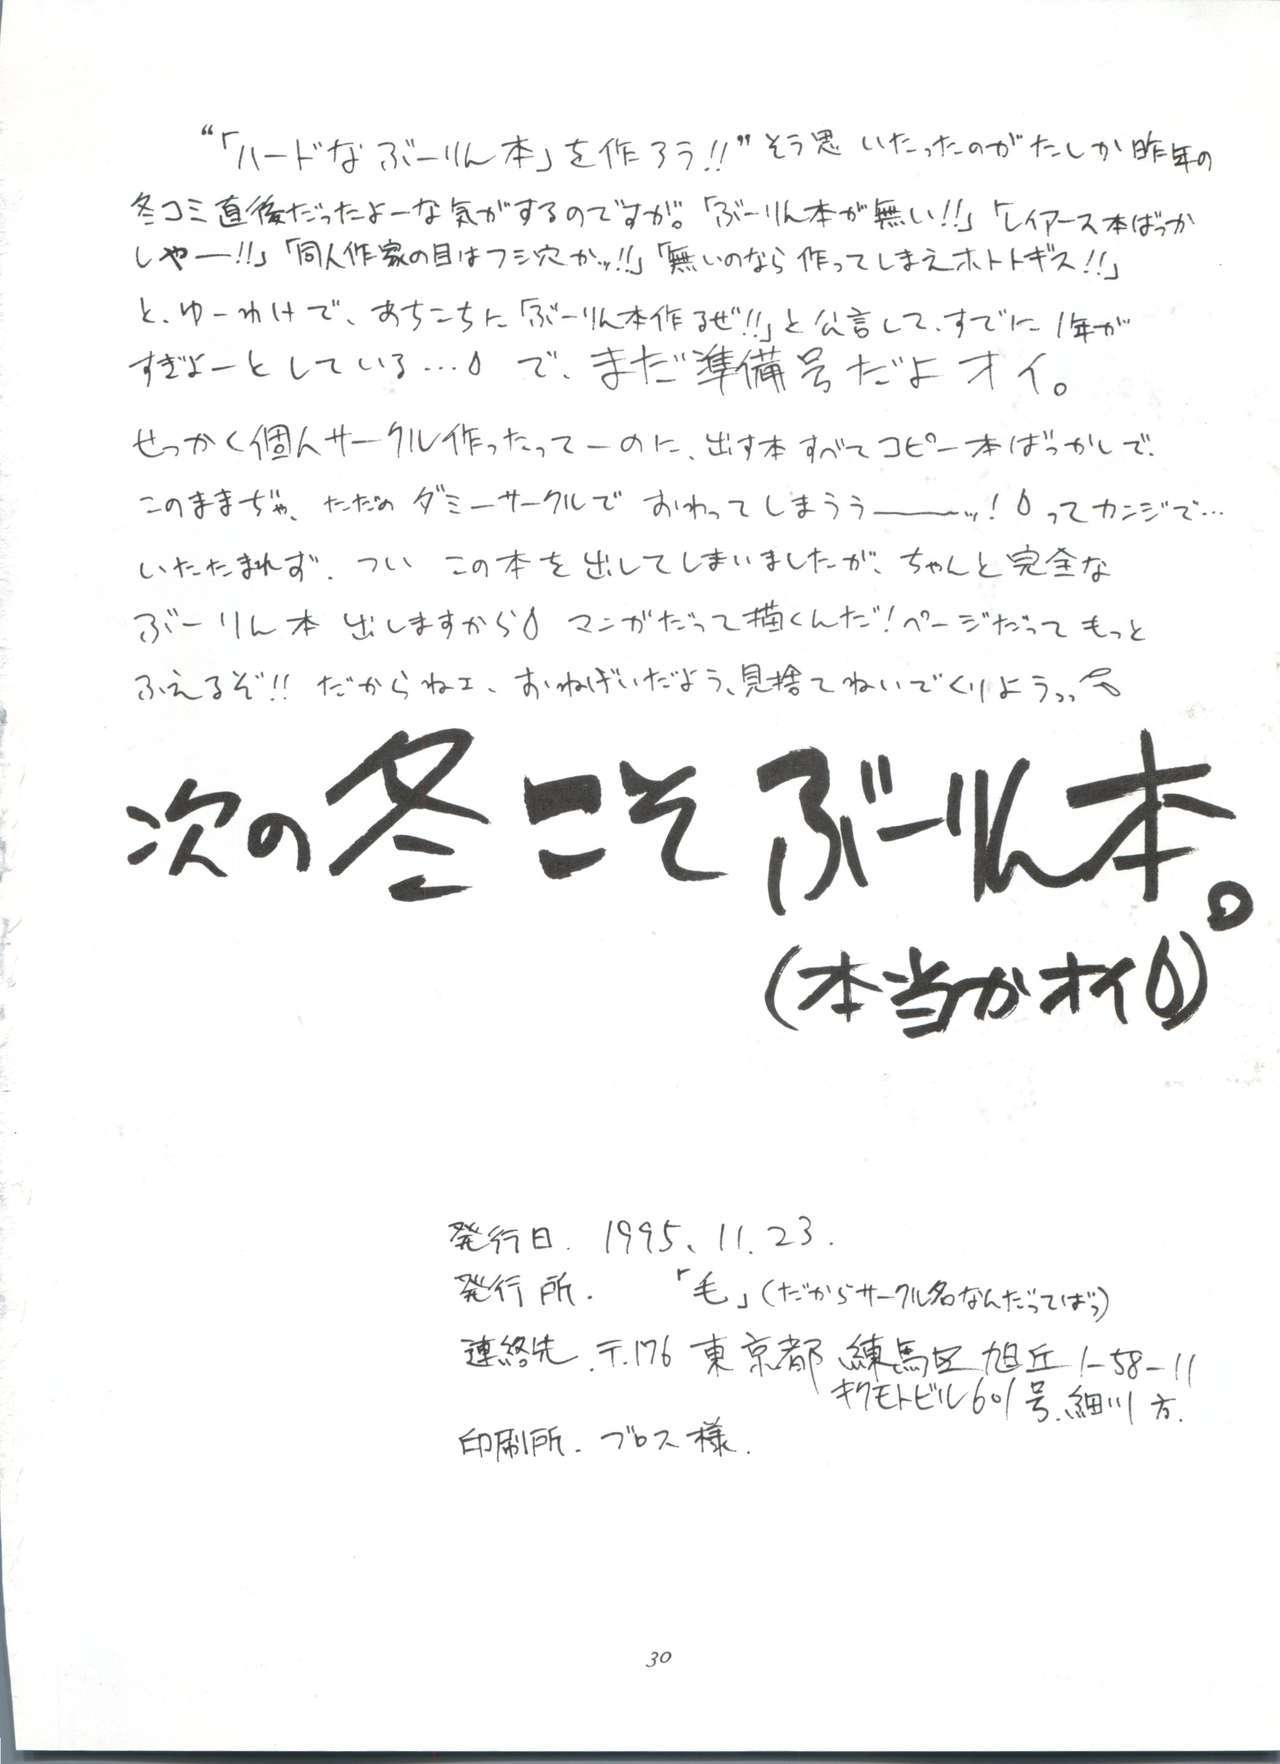 “「ハードなぶーりん本」を作ろう!!”そう思いたったのがたしか昨年の
冬コミ直後だったよーな気がするのですが。「ぶーりん本が無い!!」「レイアース本ばっか
しやー!!」「同人作家の目はフシ穴かッ!!」「無いのなら作ってしまえホトトギス!!」
と、ゆーわけで、あちこちに「ぶーりん本作るぜ!!」と公言して、すでに1年が
すぎよーとしている… で、まだ準備号だよオイ。
せっかく個人サークル作ったってーのに、出す本すべてコピー本ばっかしで、
このままぢゃ、ただのダミーサークルでおわってしまうぅ――ッ!ってカンジで…
いたたまれず、ついこの本を出してしまいましたが、ちゃんと完全な
ぶーりん本出しますから マンガだって描くんだ!ページだってもっと
ふえるぞ!!だからねェ、おねげいだよう、見捨てねいでくりようっっ
次の冬こそぶーりん本。
(本当かオイ)
発行日. 1995、11.23.
発行所. 「毛」(だからサークル名なんだってばっ)
連絡先.〒.176 東京都練馬区旭丘1-58-11
キクモトビル601号.細川方.
印刷所. ブロス様.
30